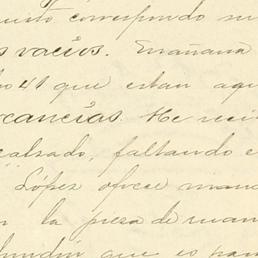 usto correspondo su
s vacios. Enañana
o 41 que estan aqu
rcancias. He reci
calzado, faltando e
López ofrece man
la pieza de man
que es par